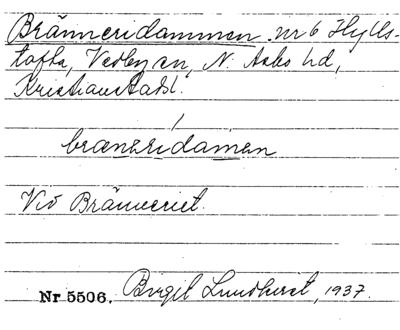 Bränneridammen nr 6 Hylls-
tofta, Vedby sn, N. Åsbo hd,
Kristianstads l.
brænəridamən
Vid Bränneriet.
Nr 5506. Birgit Lundkvist, 1937.